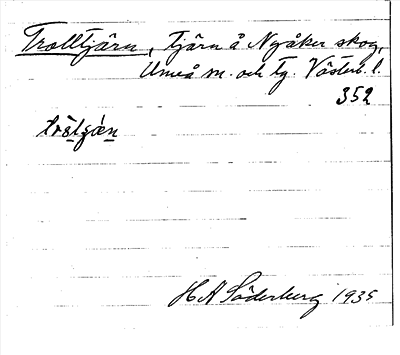 Trolltjärn, tjärn å Nyåker skog,
Umeå sn. och tg. Västerb. l.
352
H A Söderberg 1935